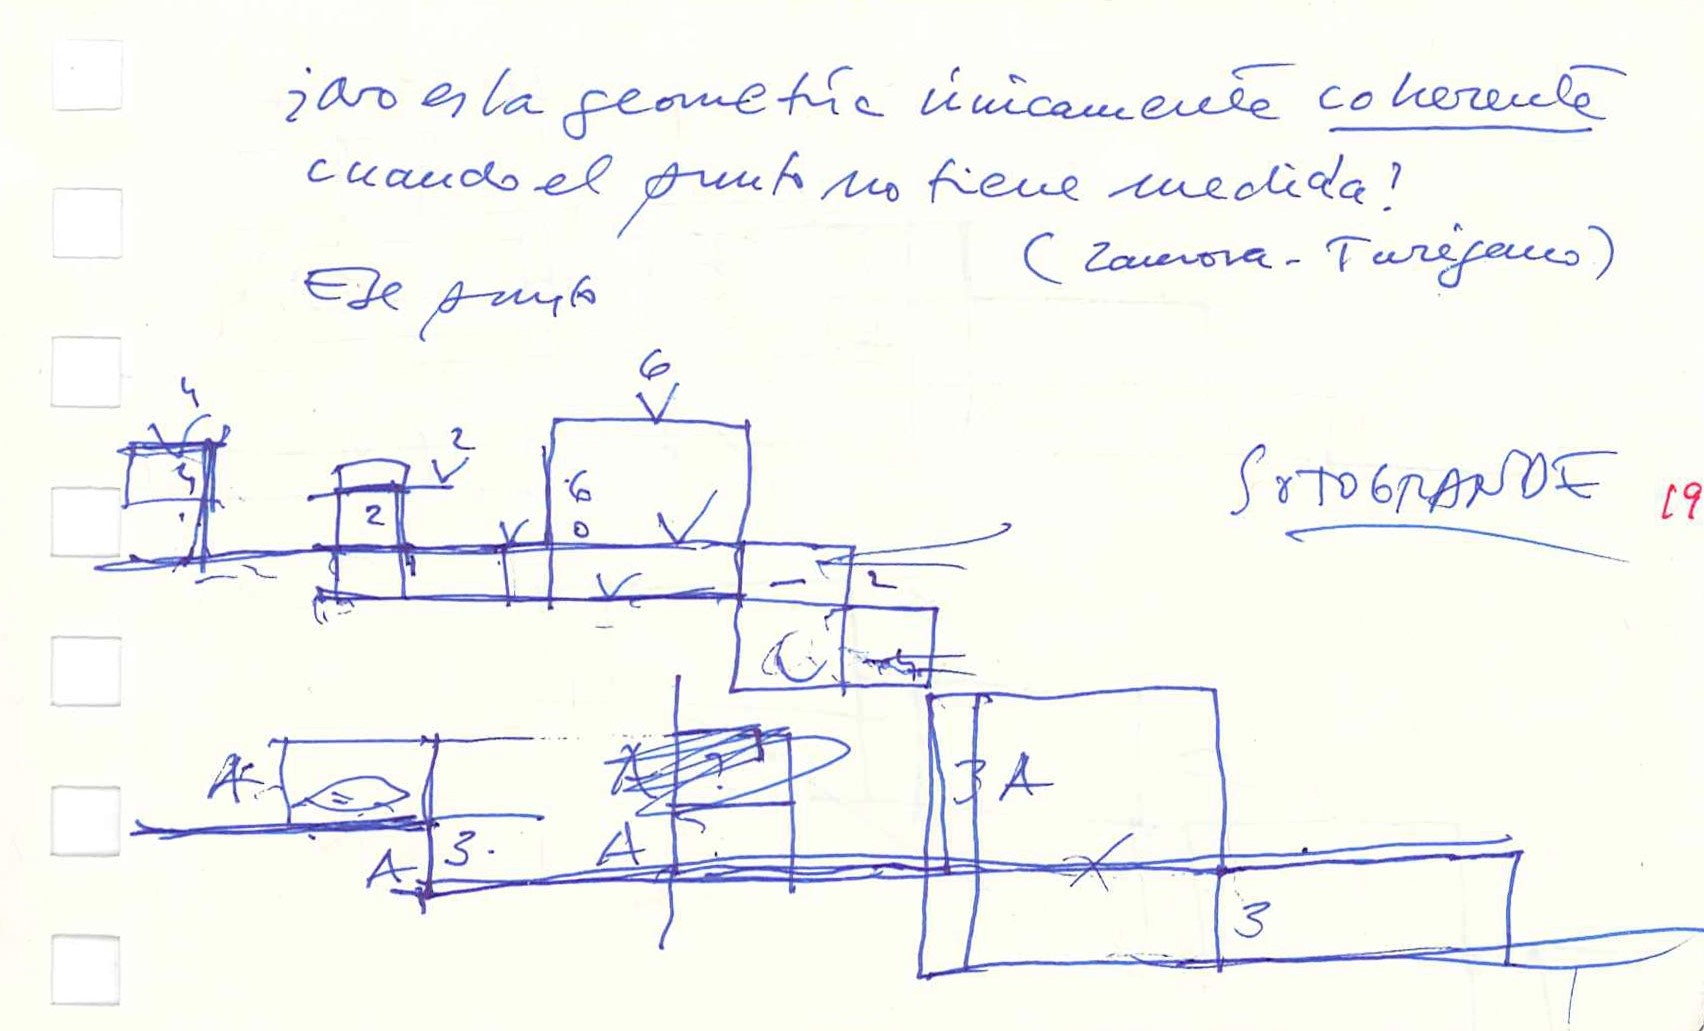 ¿No es la geometría únicamente coherente
cuando el punto no tiene medida?
(Zamora - Turégano)
Ese punto
6
4
2
4
6
2
0
2
SOTOGRANDE
19
A
3 A
A
3.
A
3